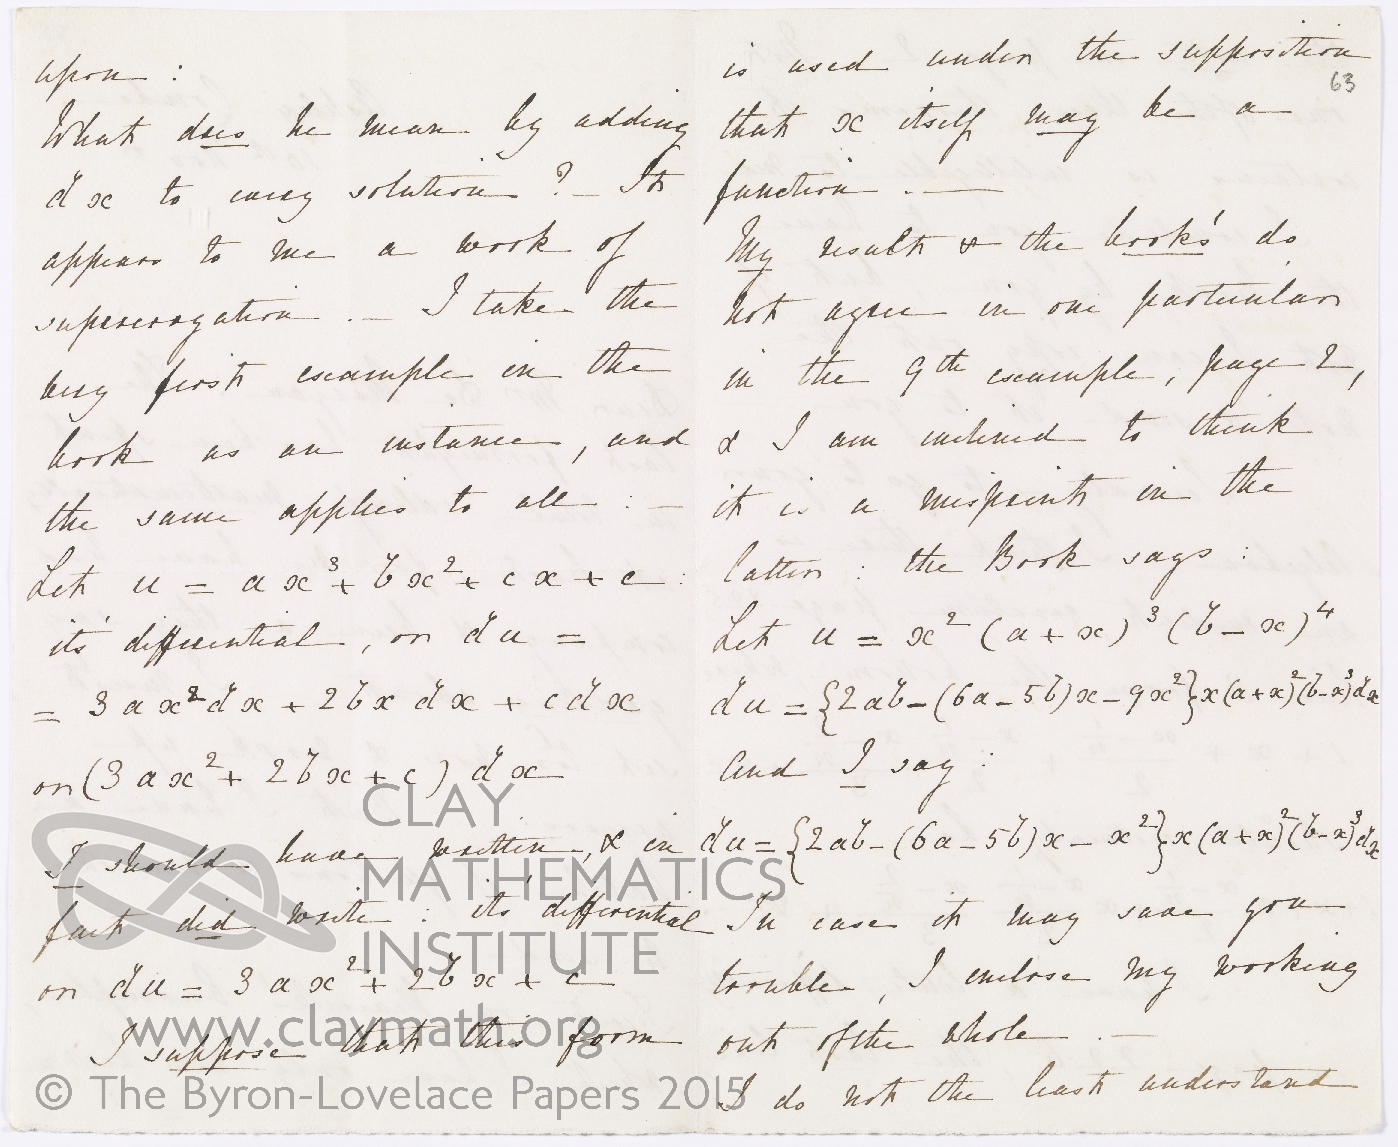 upon :
What does he mean by adding
dx to every solution ? – It
appears to me a work of
supererogation . – I take the
very first example in the
book as an instance, and
the same applies to all : –
Let u = ax³ + bx² + cx + e :
it's differential, or du =
= 3ax²dx + 2bx dx + cdx
or (3ax² + 2bx + c) dx
I should have written, & in
fact did write : it's differential
or du = 3ax² + 2bx + c
I suppose that this form
is used under the supposition
63
that x itself may be a
function . —
My result & the book's do
not agree in one particular
in the 9th example, page 2,
& I am inclined to think
it is a misprint in the
latter : the Book says :
Let u = x² (a + x)³ (b – x)⁴
du = {2ab – (6a – 5b)x – 9x²}x(a+x)²(b–x)³dx
And I say :
du = {2ab – (6a – 5b)x – x²}x(a+x)²(b–x)³dx
In case it may save you
trouble, I enclose my working
out of the whole . —
I do not the least understand
CLAY
MATHEMATICS
INSTITUTE
www.claymath.org
© The Byron-Lovelace Papers 2015